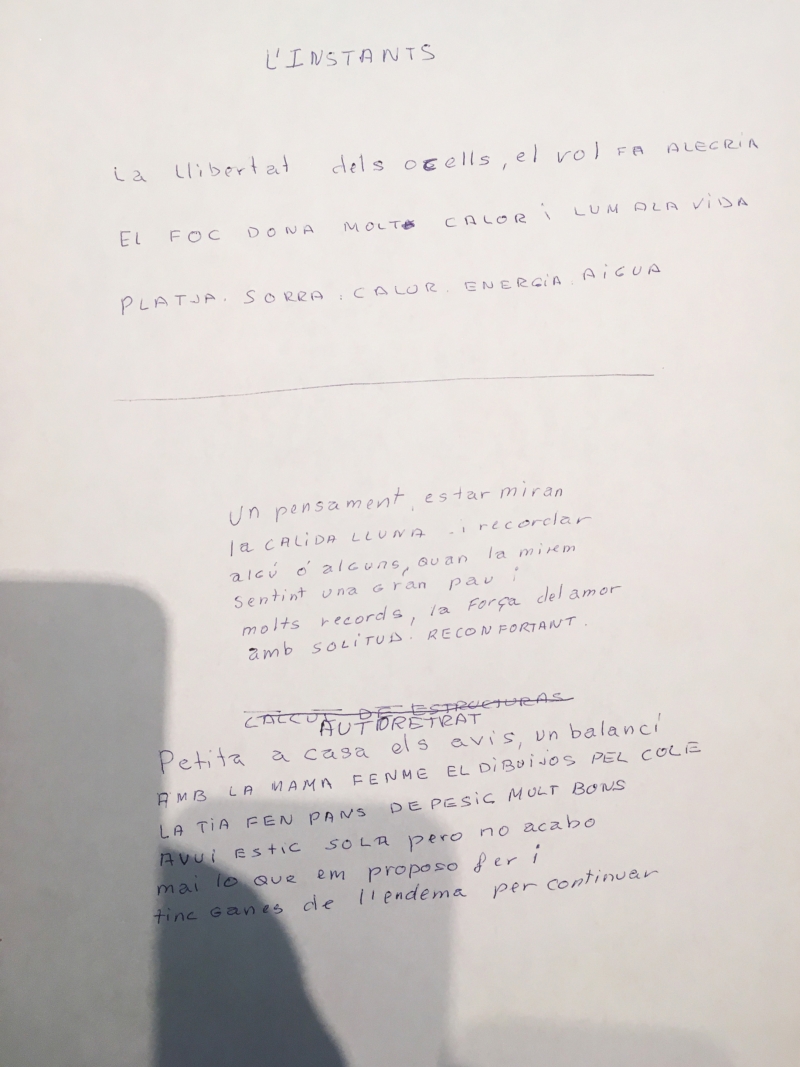 L'INSTANTS
La llibertat dels ocells, el vol FA ALEGRIA
EL FOC DONA MOLT CALOR i LUM ALA ViDA
PLATJA. SORRA. CALOR. ENERGiA. AiGUA
Un pensament, estar miran
la CALiDA LLUNA - i recordar
algú o' alguns, quan la mirem
sentint una Gran pau i
molts records, la Força del amor
amb SOLiTUD. RECONFORTANT.
CALCUL DE ESTRUCTURAS
AUTORETRAT
Petita a casa els avis, un balancí
AMB LA MAMA FENME EL DiBUiJOS PEL COLE
LA TiA FEN PANS DE PESIC MULT BONS
AVUi EStiC SOLA pero no acabo
mai lo que em proposo fer i
tinc Ganes de l'endema per continuar